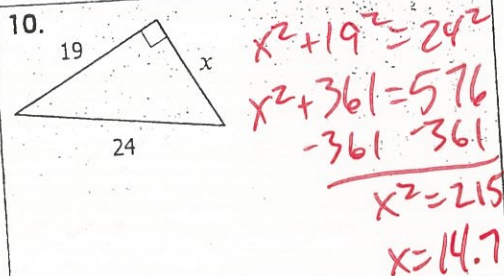 10.
19
x
24
x²+19²=24²
x²+361=576
-361 -361
x²=215
x=14.7